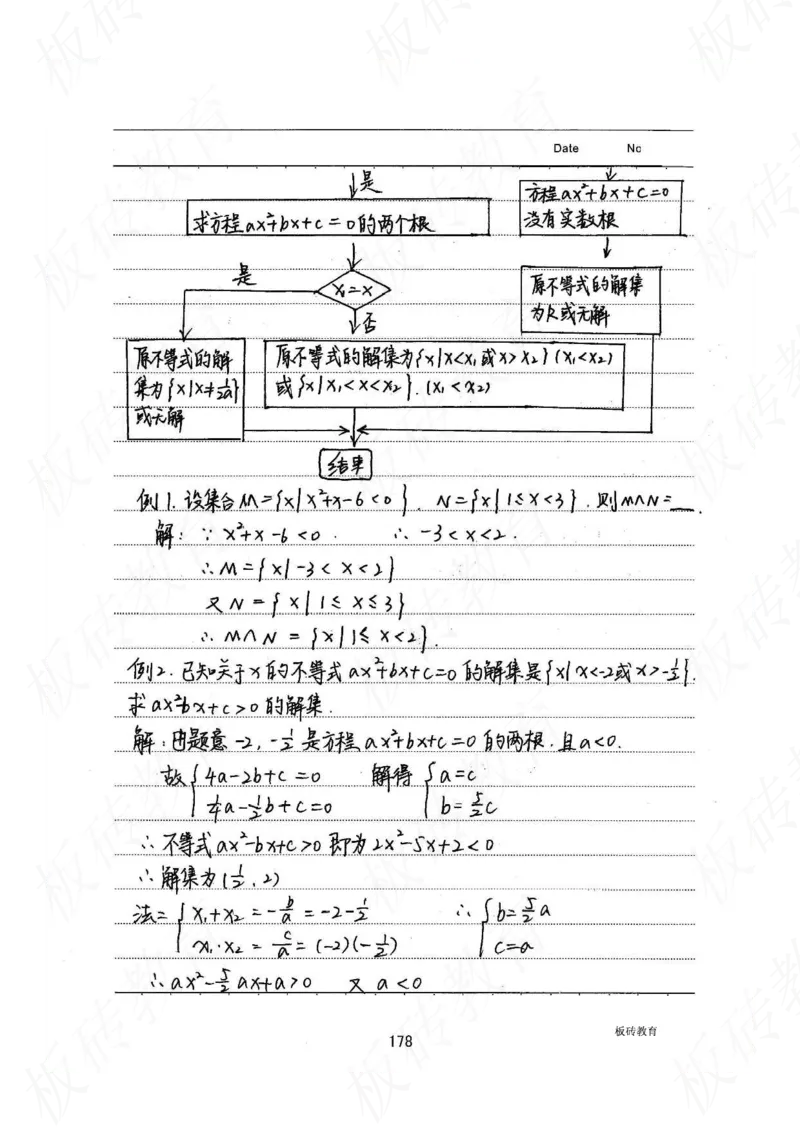 Date No
是
求方程ax²+bx+c=0的两个根
方程ax²+bx+c=0
没有实数根
是
x₁=x
否
原不等式的解集
为R或无解
原不等式的解
集为{x|x≠-b/2a}
或无解
原不等式的解集为{x|x<x₁或x>x₂}(x₁<x₂)
或{x|x₁<x<x₂}.(x₁<x₂)
结束
例1.设集合M={x|x²+x-6<0}.N={x|1≤x<3}.则M∩N=__.
解:∵x²+x-6<0. ∴-3<x<2.
∴M={x|-3<x<2}
又N={x|1≤x≤3}
∴M∩N={x|1≤x<2}.
例2.已知关于x的不等式ax²+bx+c=0的解集是{x|x<-2或x>-1/2}.
求ax²bx+c>0的解集.
解:由题意-2,-1/2是方程ax²+bx+c=0的两根.且a<0.
故{4a-2b+c=0 解得{a=c
1/4a-1/2b+c=0 b=5/2c
∴不等式ax²-bx+c>0即为2x²-5x+2<0
∴解集为(1/2,2)
法二{x₁+x₂=-b/a=-2-1/2 ∴{b=5/2a
x₁·x₂=c/a=(-2)(-1/2) c=a
∴ax²-5/2ax+a>0 又a<0
178
板砖教育